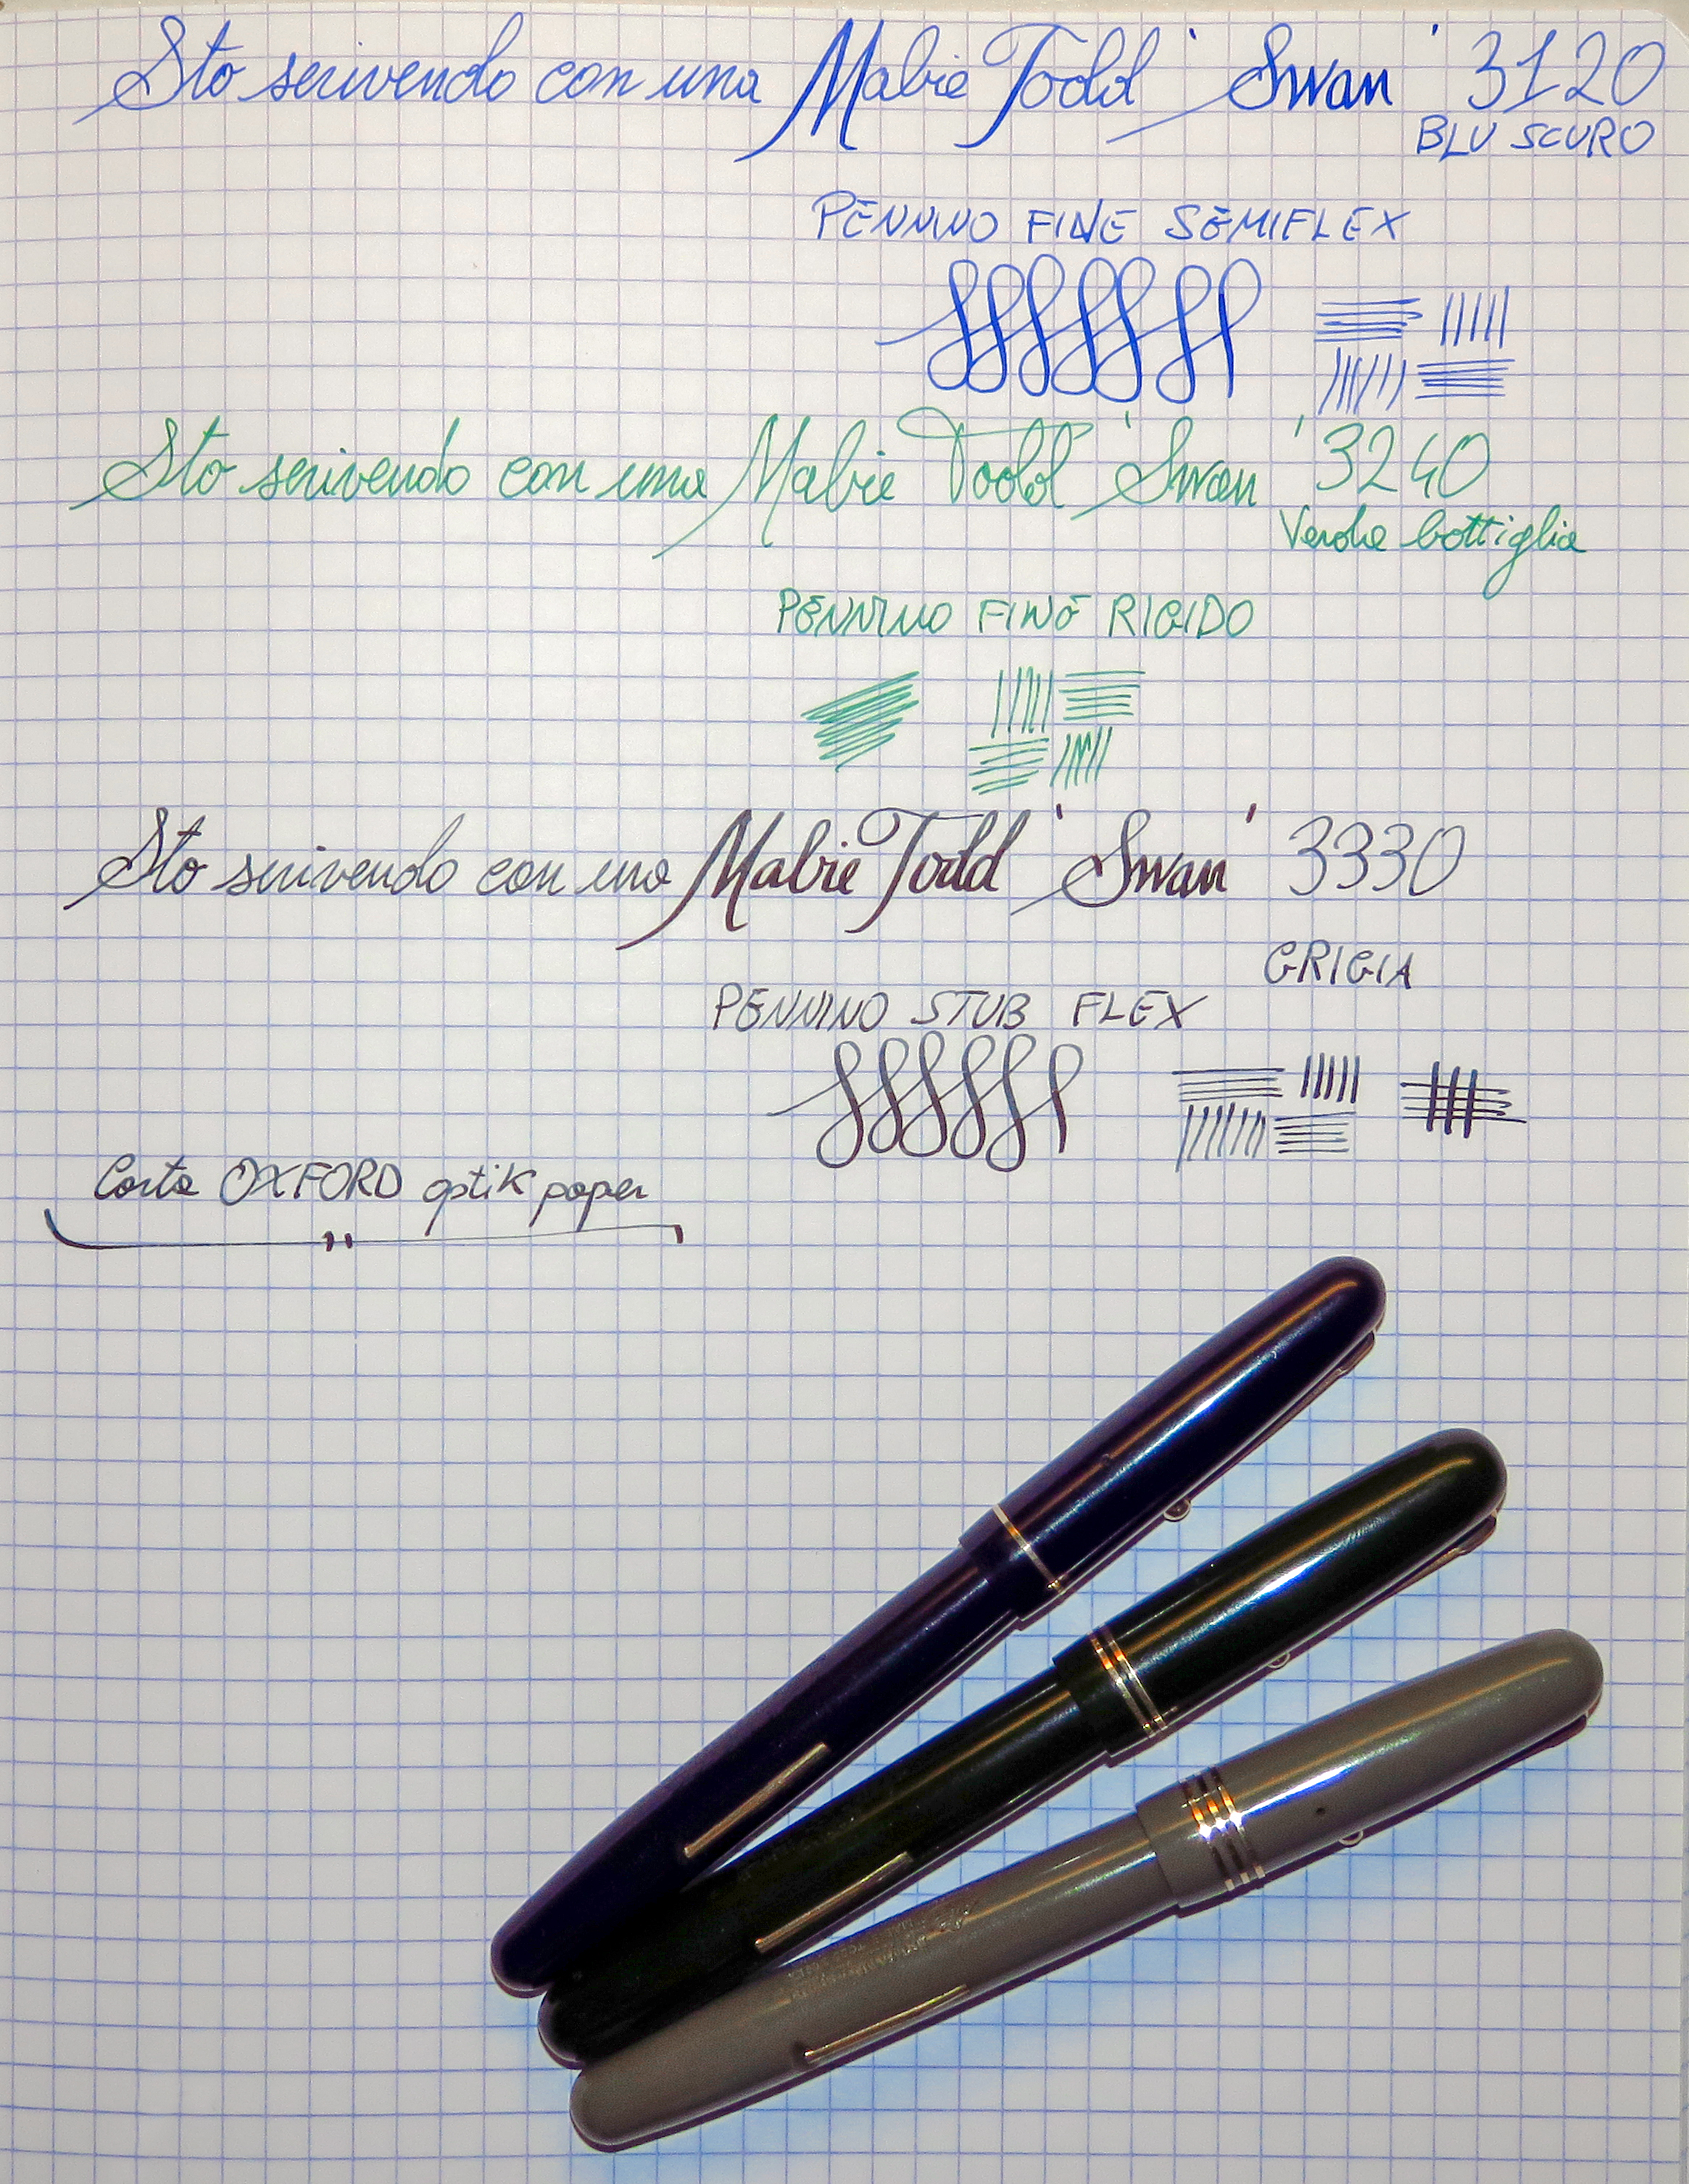 Sto scrivendo con una Mabie Todd 'Swan' 3120
BLU SCURO
PENNINO FINE SEMIFLEX
Sto scrivendo con una Mabie Todd 'Swan' 3240
Verde bottiglia
PENNINO FINE RIGIDO
Sto scrivendo con una Mabie Todd 'Swan' 3330
GRIGIA
PENNINO STUB FLEX
Carta OXFORD optik paper